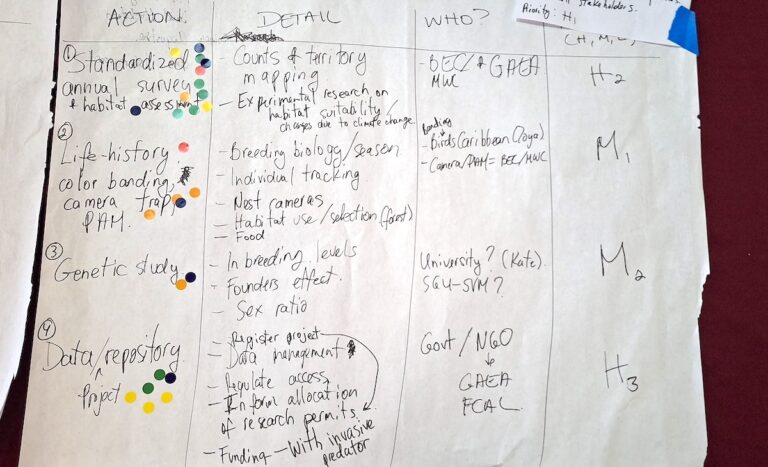 ACTION
DETAIL
WHO?
stakeholders.
Priority: H1
①
Standardized
annual survey
+ habitat assessment
- Counts & territory
mapping
- Experimental research on
habitat suitability/
changes due to climate change
- BEC/ & GAEA
MWC
H2
②
Life-history
color banding,
camera trap,
PAM.
- Breeding biology/season
- Individual tracking
- Nest cameras
- Habitat use/selection (forest)
- Food
Banding
- Birds Caribbean
- Camera/PAM = BEC/MWC
M1
③
Genetic study
- In breeding levels
- Founders effect.
- Sex ratio
University? (Kate).
SGU-SVM?
M2
④
Data/repository
Project
- Register project
- Data management
- Regulate access
- Inform allocation
of research permits
- Funding - With invasive
predator
Govt/NGO
GAEA
FCAL
H3